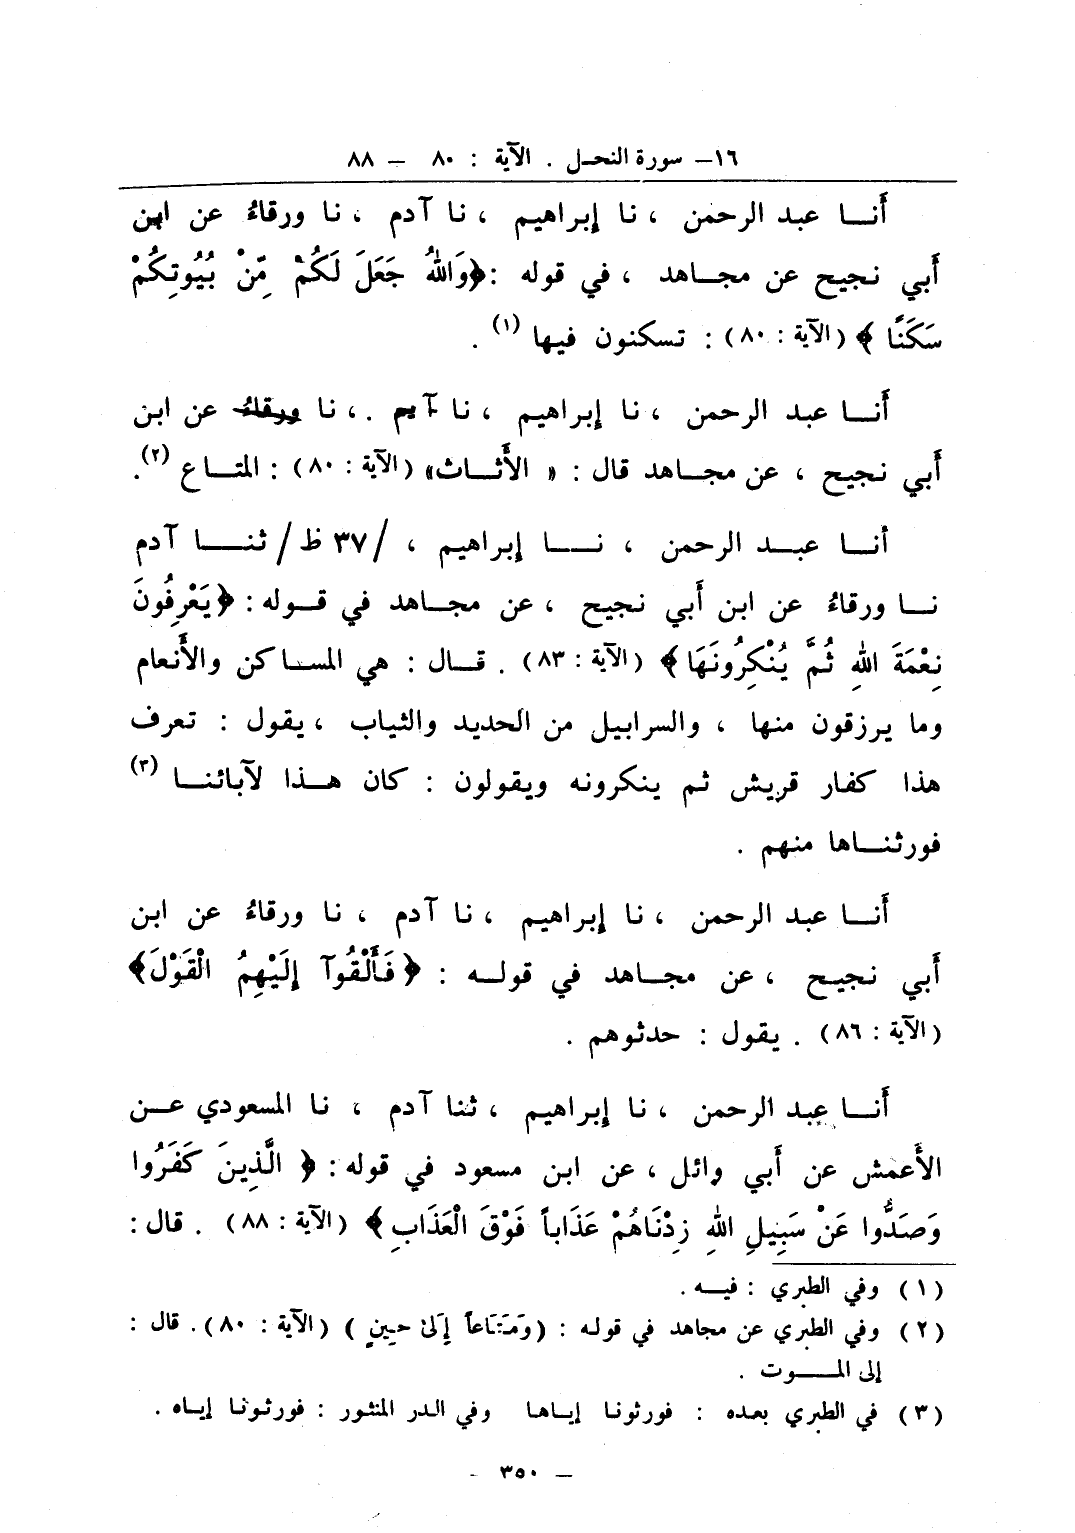 ١٦– سورة النحل . الآية : ٨٠ – ٨٨
أَنا عبد الرحمن ، نا إبراهيم ، نا آدم ، نا ورقاءُ عن ابن
أَبي نجيح عن مجاهد ، في قوله :﴿وَاللهُ جَعَلَ لَكُمْ مِّنْ بُيُوتِكُمْ
سَكَنًا ﴾ (الآية : ٨٠) : تسكنون فيها (١) .
أَنا عبد الرحمن ، نا إبراهيم ، نا آدم ، نا ورقاءُ عن ابن
أَبي نجيح ، عن مجاهد قال : « الأَثاث» (الآية : ٨٠) : المتاع (٢).
أنا عبد الرحمن ، نا إبراهيم ، /٣٧ ظ/ ثنا آدم
نا ورقاءُ عن ابن أَبي نجيح ، عن مجاهد في قوله : ﴿يَعْرِفُونَ
نِعْمَةَ اللهِ ثُمَّ يُنْكِرُونَهَا﴾ (الآية : ٨٣) . قال : هي المساكن والأَنعام
وما يرزقون منها ، والسرابيل من الحديد والثياب ، يقول : تعرف
هذا كفار قريش ثم ينكرونه ويقولون : كان هذا لآبائنا (٣)
فورثناها منهم .
أَنا عبد الرحمن ، نا إبراهيم ، نا آدم ، نا ورقاءُ عن ابن
أَبي نجيح ، عن مجاهد في قوله : ﴿ فَأَلْقُوآ إِلَيْهِمُ الْقَوْلَ﴾
(الآية : ٨٦) . يقول : حدثوهم .
أَنا عبد الرحمن ، نا إبراهيم ، ثنا آدم ، نا المسعودي عن
الأَعمش عن أَبي وائل ، عن ابن مسعود في قوله : ﴿ الَّذِينَ كَفَرُوا
وَصَدُّوا عَنْ سَبِيلِ اللهِ زِدْنَاهُمْ عَذَاباً فَوْقَ الْعَذَابِ﴾ (الآية : ٨٨) . قال :
(١) وفي الطبري : فيه .
(٢) وفي الطبري عن مجاهد في قوله : (وَمَتَاعاً إِلَىٰ حينٍ ) (الآية : ٨٠). قال :
إلى الموت .
(٣) في الطبري بعده : فورثونا إياها وفي الدر المنثور : فورثونا إياه .
– ٣٥٠ –